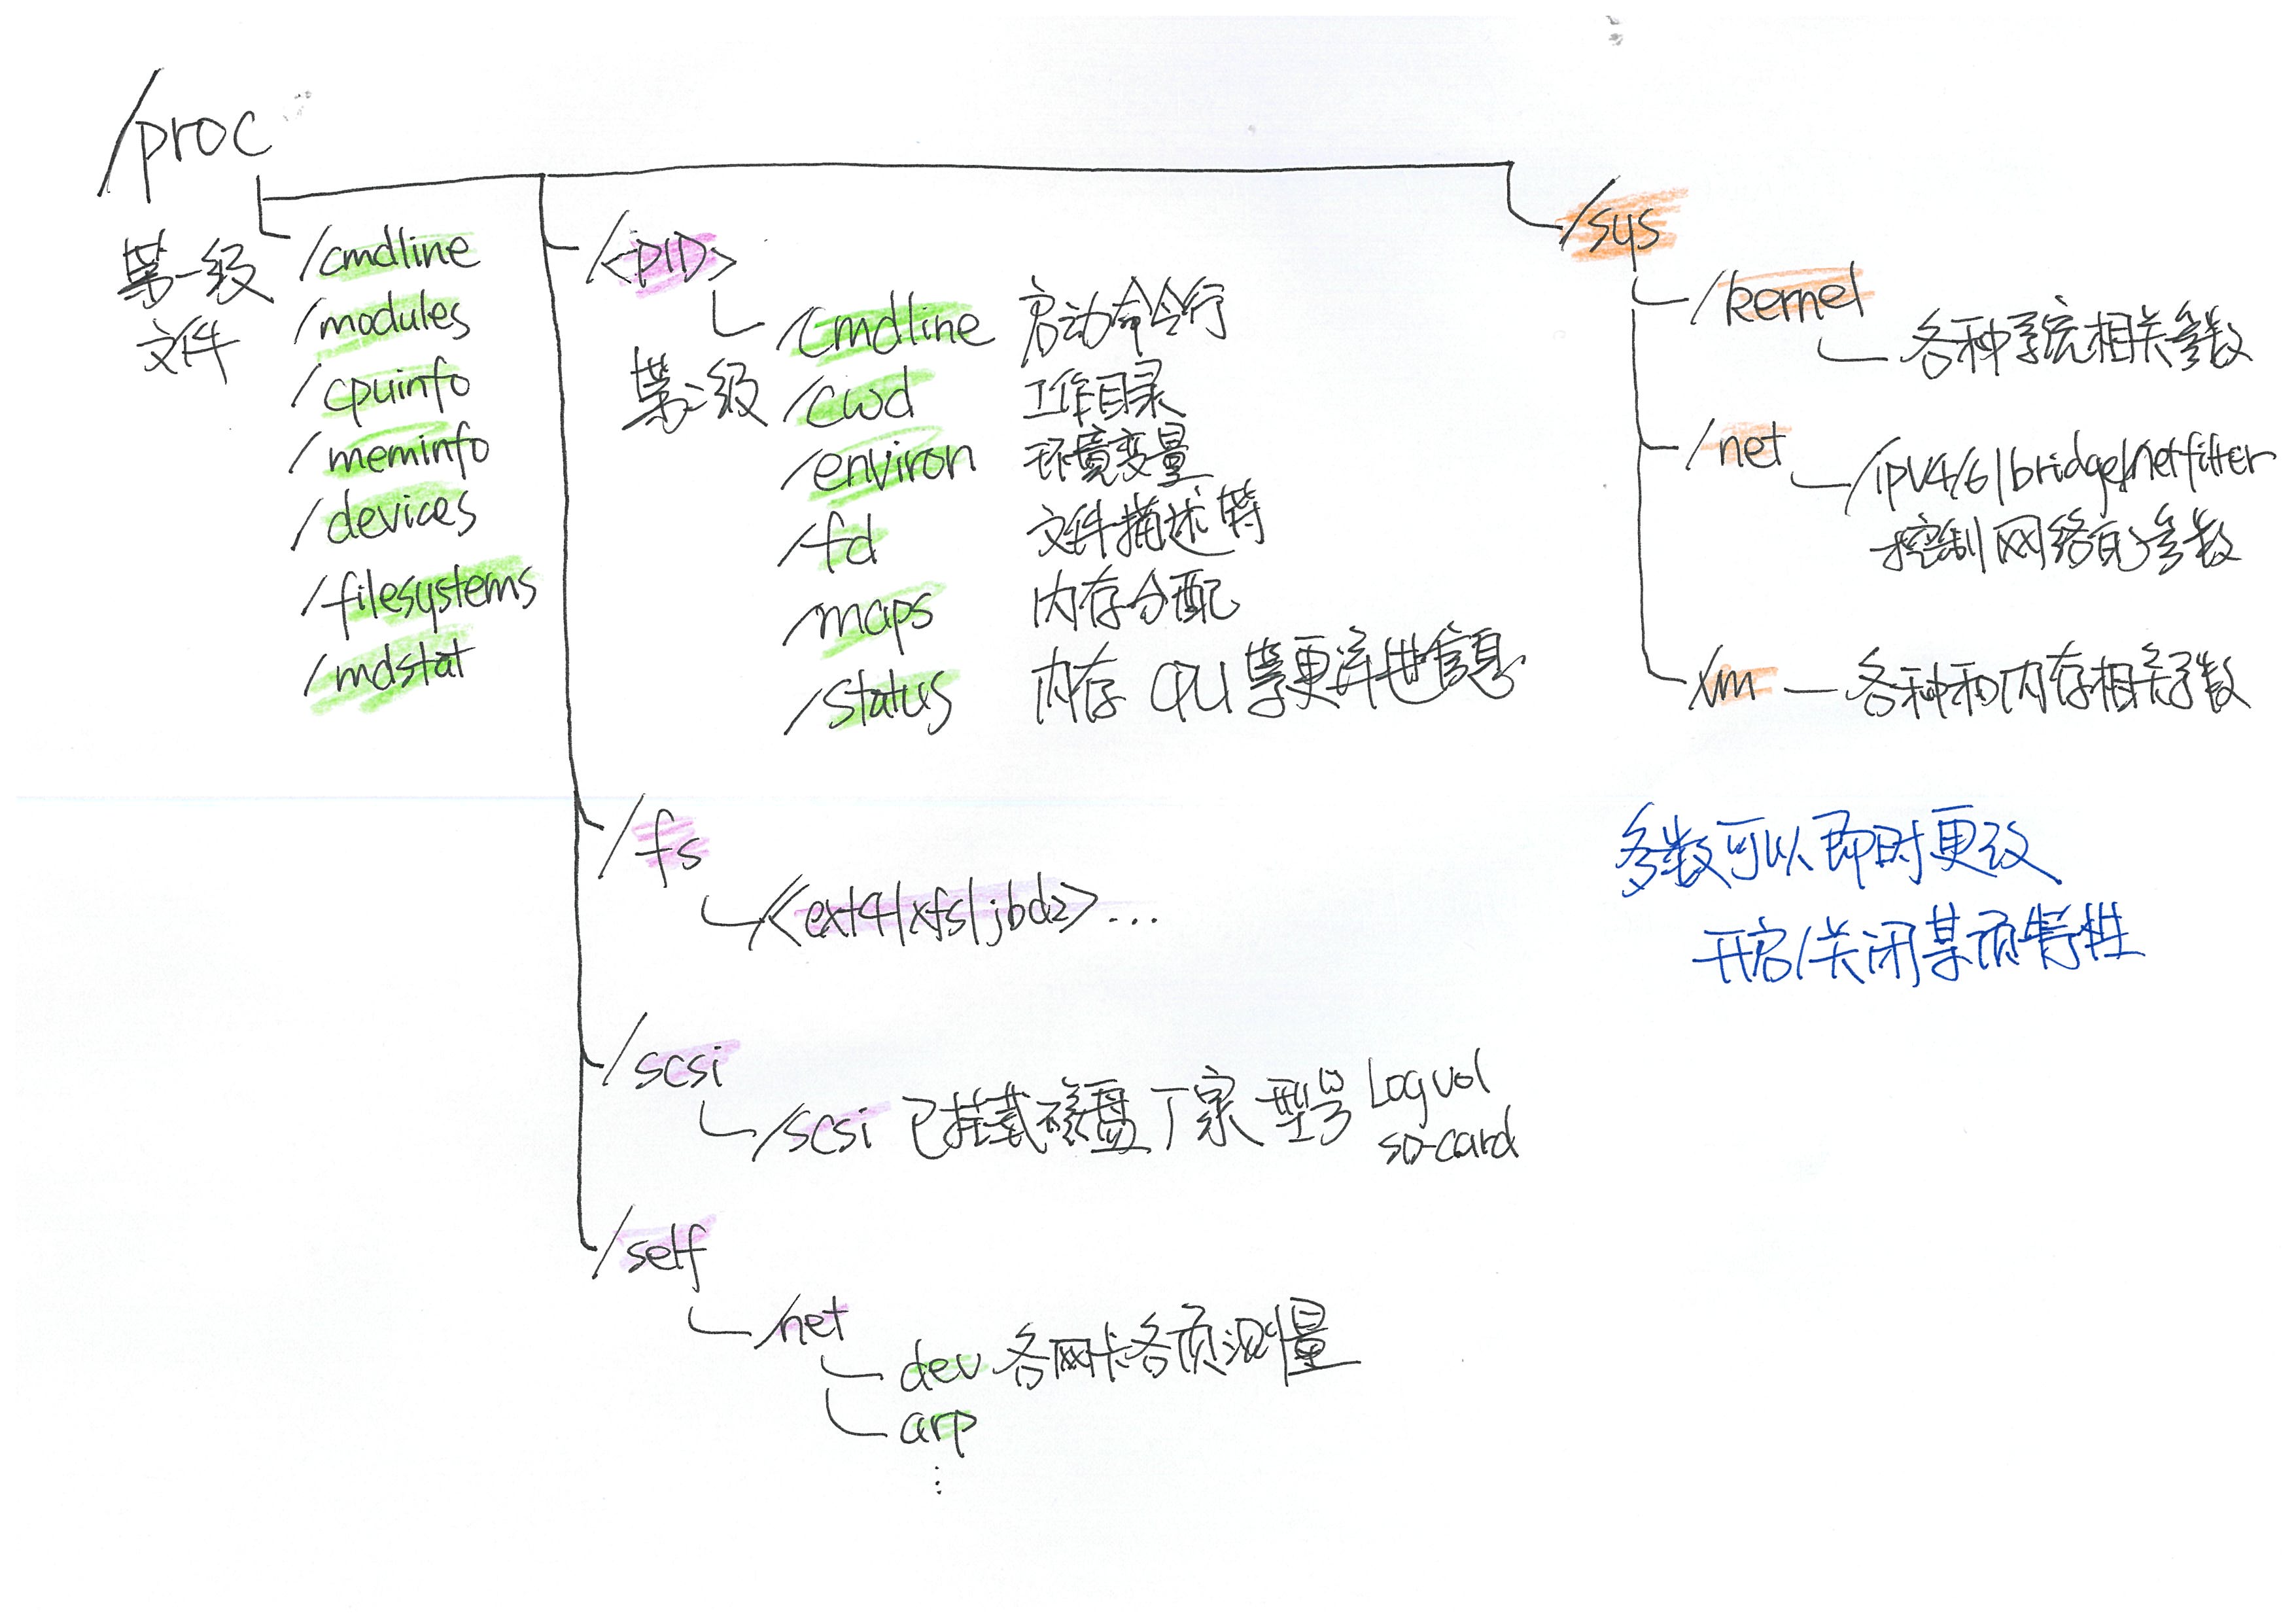 /proc
第一级
文件
/cmdline
/modules
/cpuinfo
/meminfo
/devices
/filesystems
/mdstat
/<PID>
第二级
/cmdline 启动命令行
/cwd 工作目录
/environ 环境变量
/fd 文件描述符
/maps 内存分配
/status 内存 CPU 等更详进信息
/fs
/<ext4|xfs|jbd2>...
/scsi
/scsi 已挂载磁盘厂家 型号 Logvol
SD-card
/self
/net
dev 各网卡各项测量
arp
⋮
/sys
/kernel
各种系统相关参数
/net
/ipv4/6|bridge/netfilter
控制网络的参数
/vm — 各种和内存相关参数
多数可以即时更改
开启/关闭某项特性